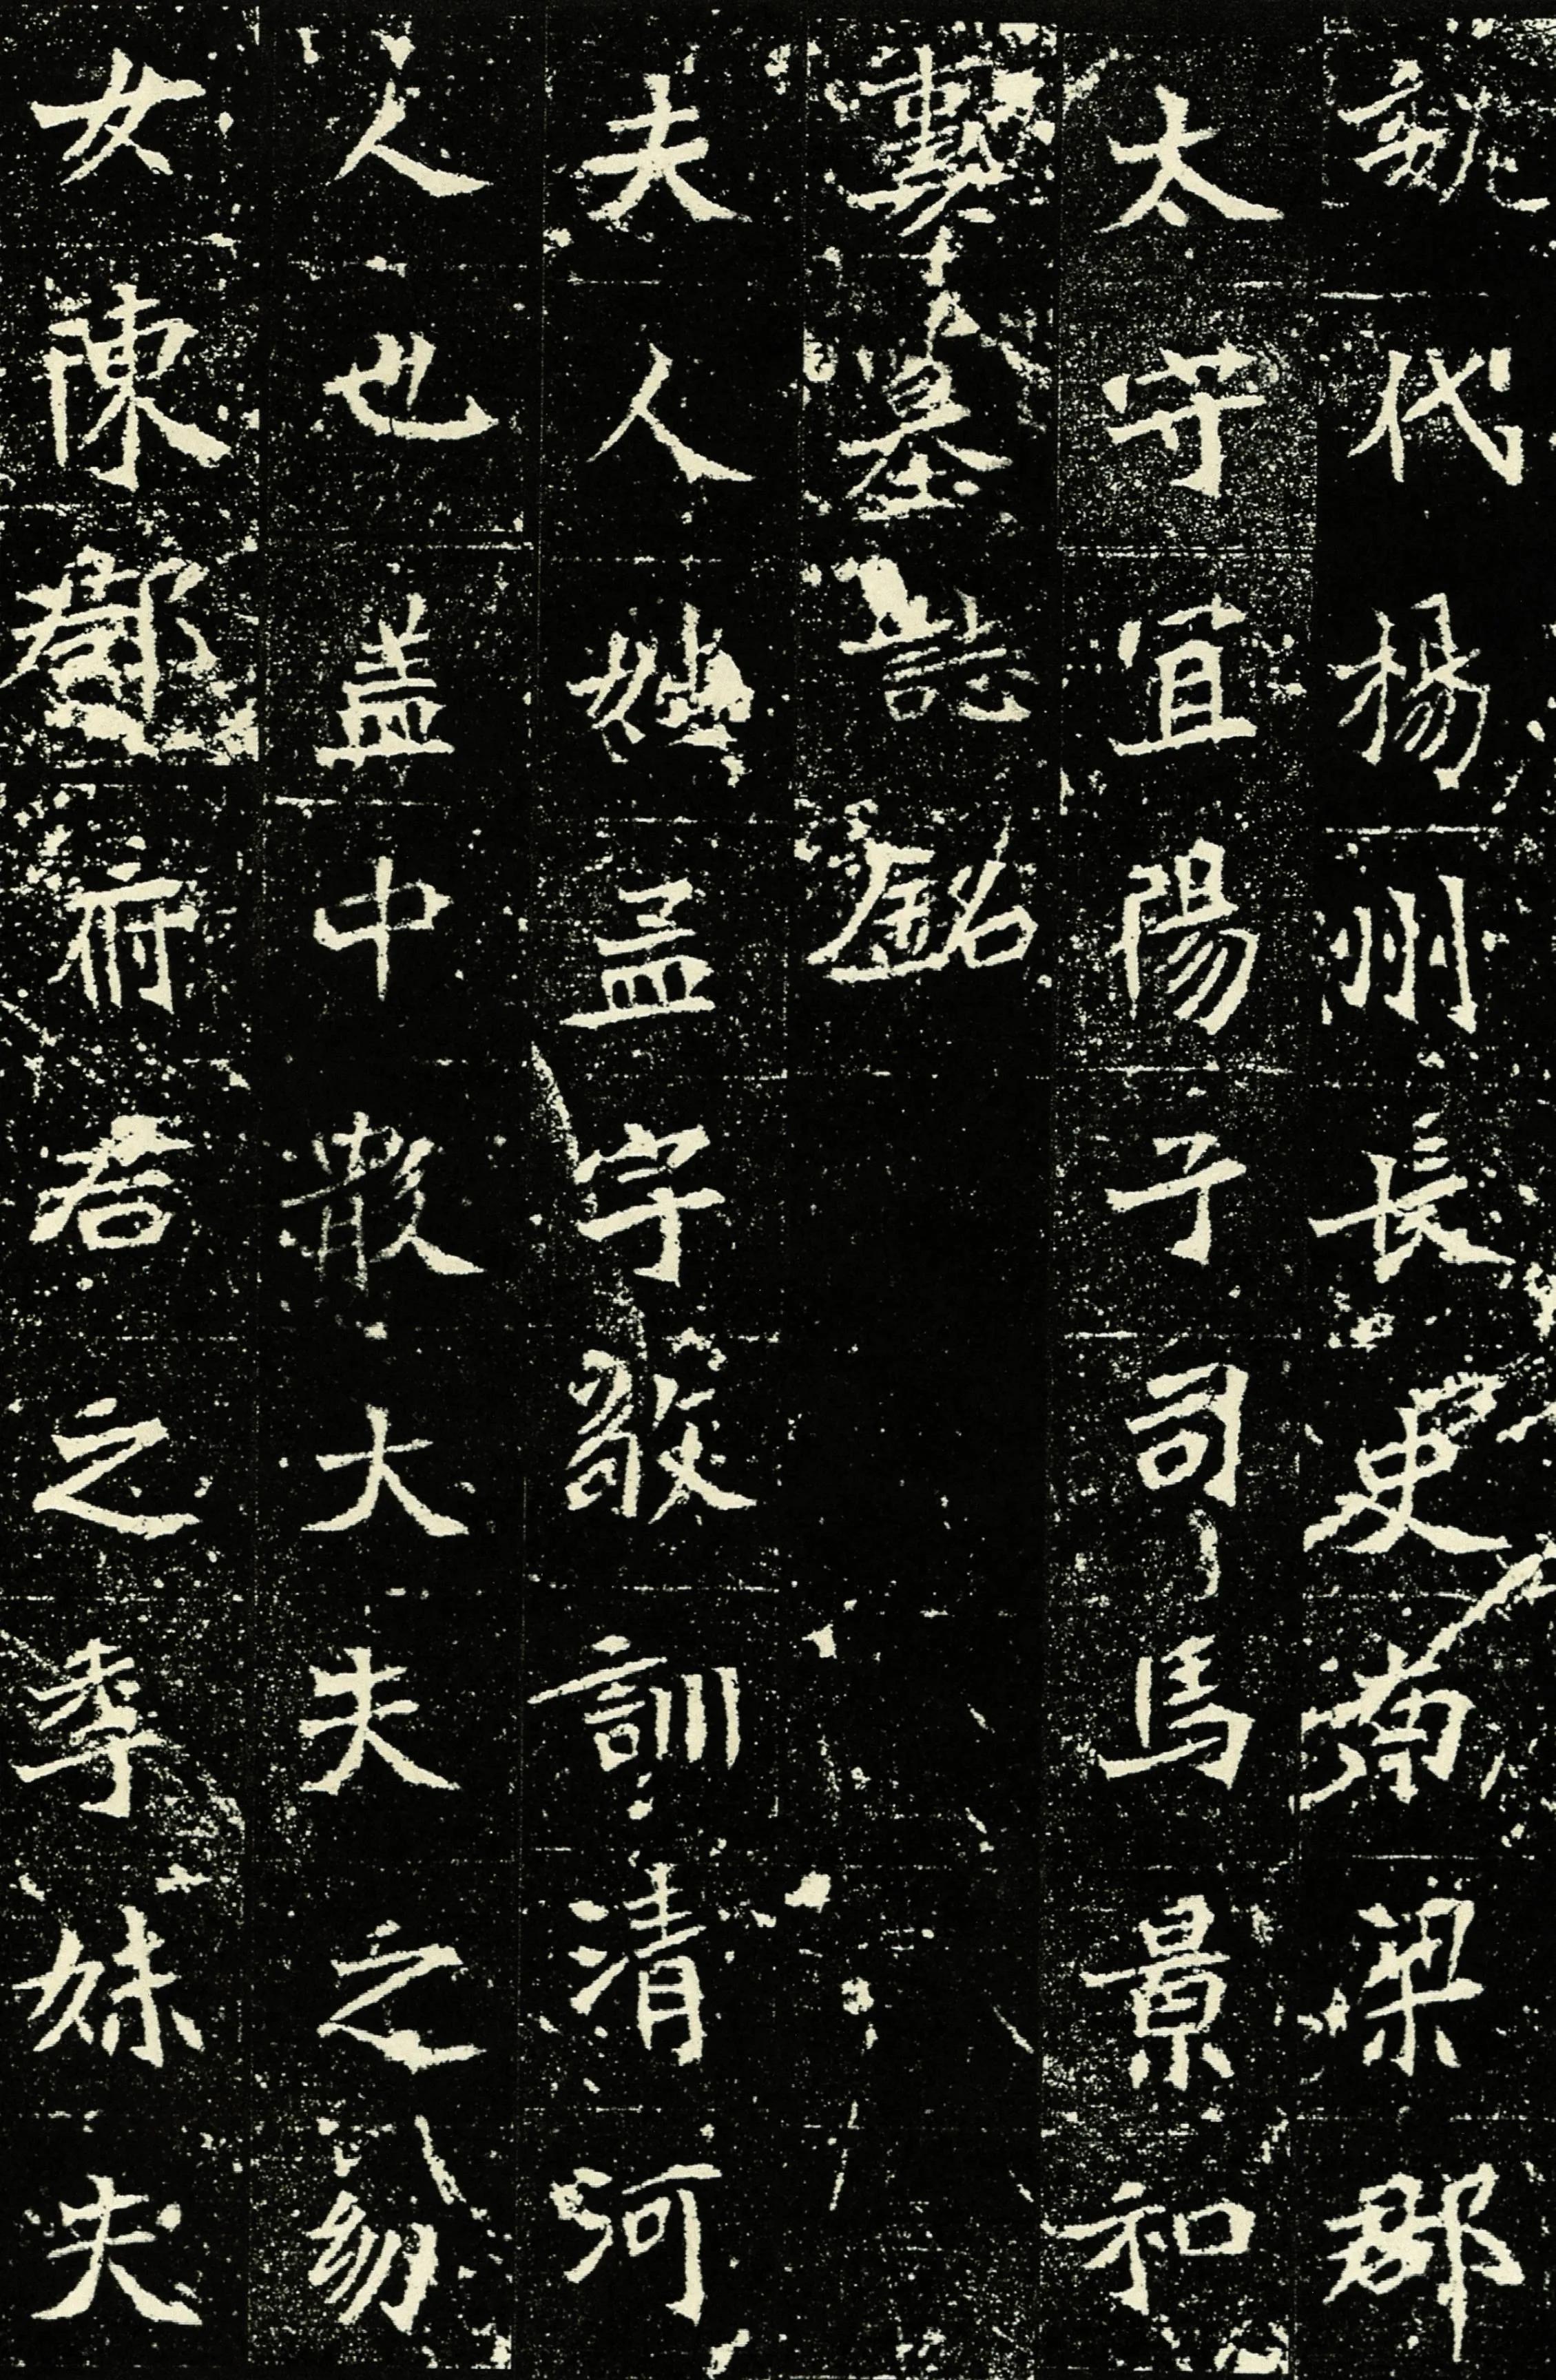 代楊州長史南梁郡
太守宜陽子司馬景和
墓誌銘
夫人姓孟字敬訓清河
人也盖中散大夫之幼
女陳郡府君之季妹夫